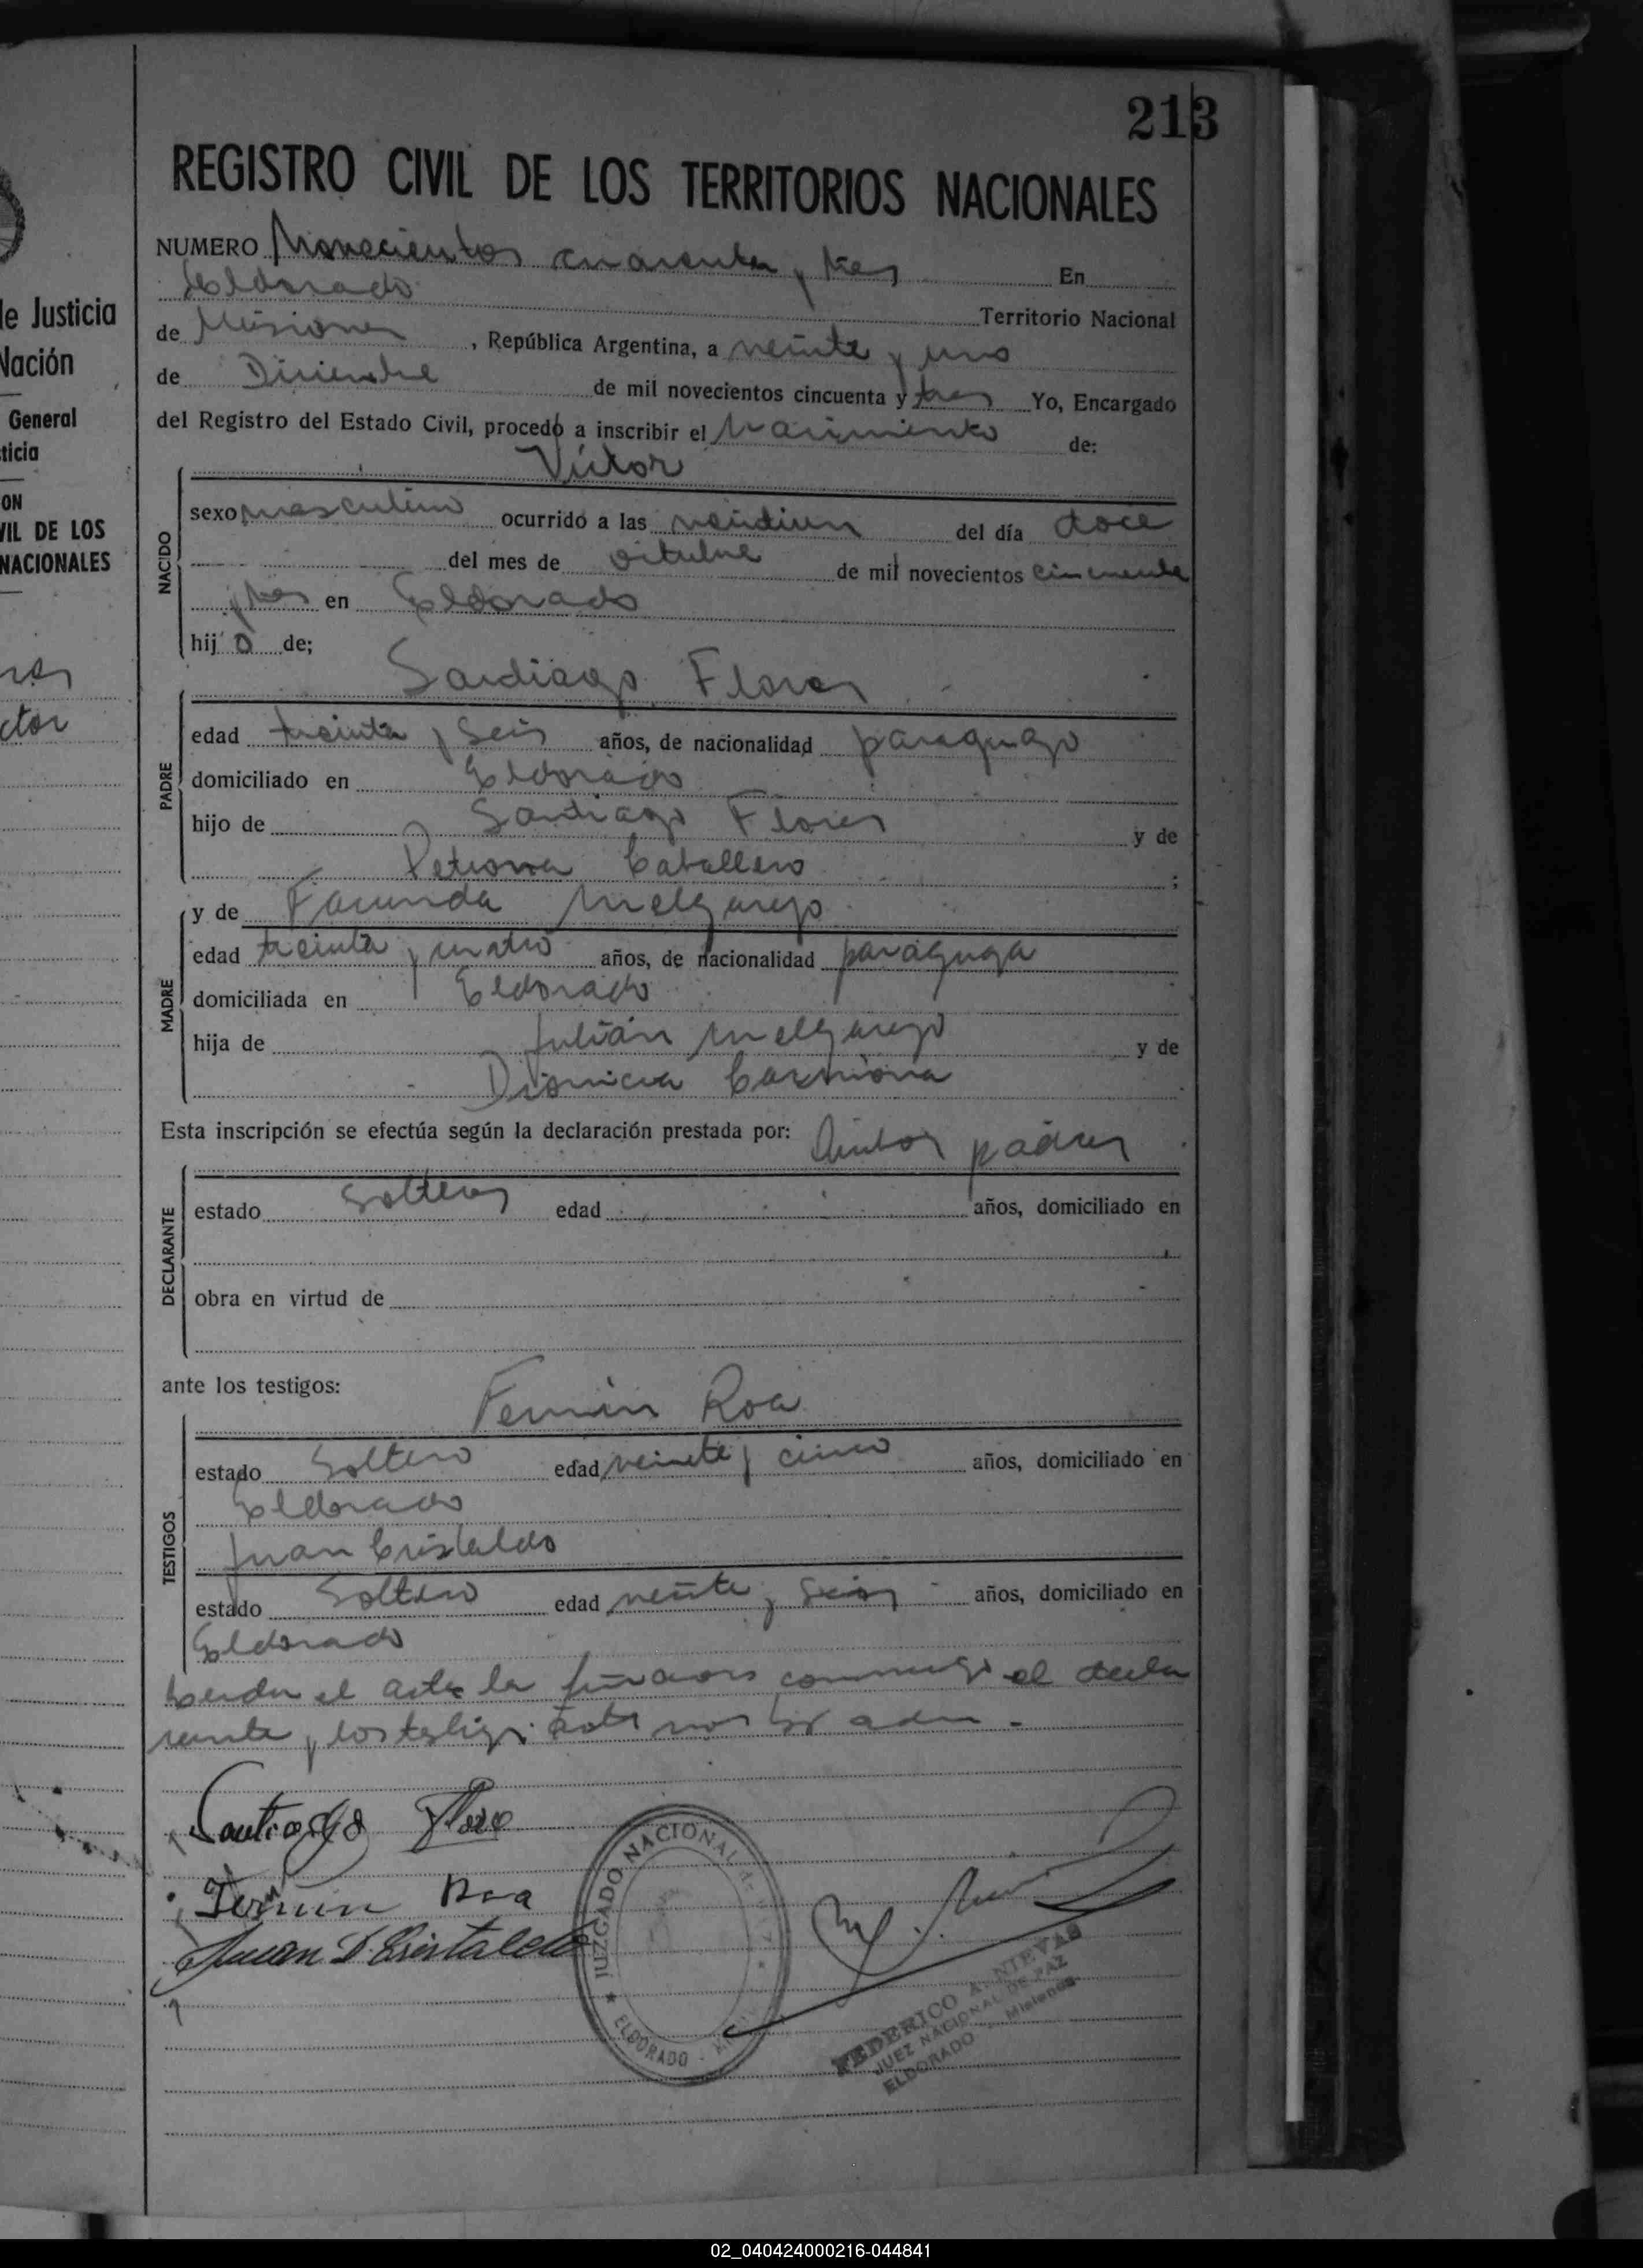 213
REGISTRO CIVIL DE LOS TERRITORIOS NACIONALES
NUMERO Novecientos cuarenta y tres En
Eldorado
Territorio Nacional
de Misiones, República Argentina, a veinte y uno
de Diciembre de mil novecientos cincuenta y tres Yo, Encargado
del Registro del Estado Civil, procedo a inscribir el Nacimiento de:
Victor
NACIDO
sexo masculino ocurrido a las veintiun del día doce
del mes de octubre de mil novecientos cincuenta
y tres en Eldorado
hijo de;
Santiago Flores
PADRE
edad treinta y seis años, de nacionalidad paraguayo
domiciliado en Eldorado
hijo de Santiago Flores y de
Petrona Caballero ;
MADRE
y de Facunda Melgarejo
edad treinta y cuatro años, de nacionalidad paraguaya
domiciliada en Eldorado
hija de Julián Melgarejo y de
Dionicia
Esta inscripción se efectúa según la declaración prestada por: Ambos padres
DECLARANTE
estado solteros edad años, domiciliado en
obra en virtud de
ante los testigos:
Fermin Roa
TESTIGOS
estado Soltero edad veinte y cinco años, domiciliado en
Eldorado
Juan Cristaldo
estado Soltero edad veinte y seis años, domiciliado en
Eldorado
el acta la conmigo el decla
rante y los
Santiago Flore
Fermin Roa
Juan D. Cristaldo
JUZGADO NACIONAL
ELDORADO
FEDERICO A. NIEVAS
JUEZ NACIONAL DE PAZ
ELDORADO - Misiones
de Justicia
Nación
General
ticia
ON
VIL DE LOS
NACIONALES
res
ctor
02_040424000216-044841